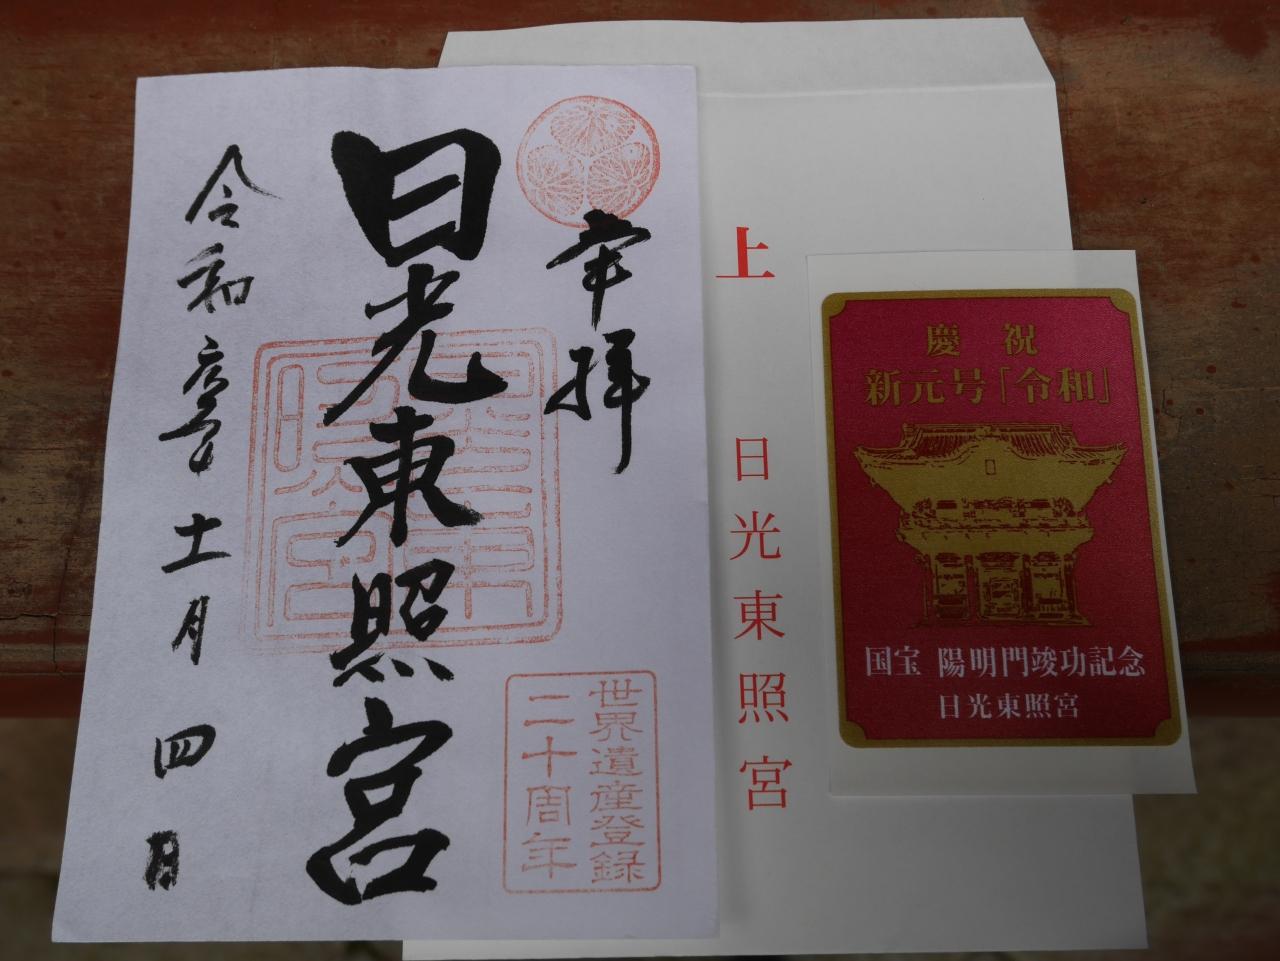 奉拝
日光東照宮
令和元年十一月四日
世界遺産登録
二十周年
上
日光東照宮
慶祝
新元号「令和」
国宝 陽明門竣功記念
日光東照宮